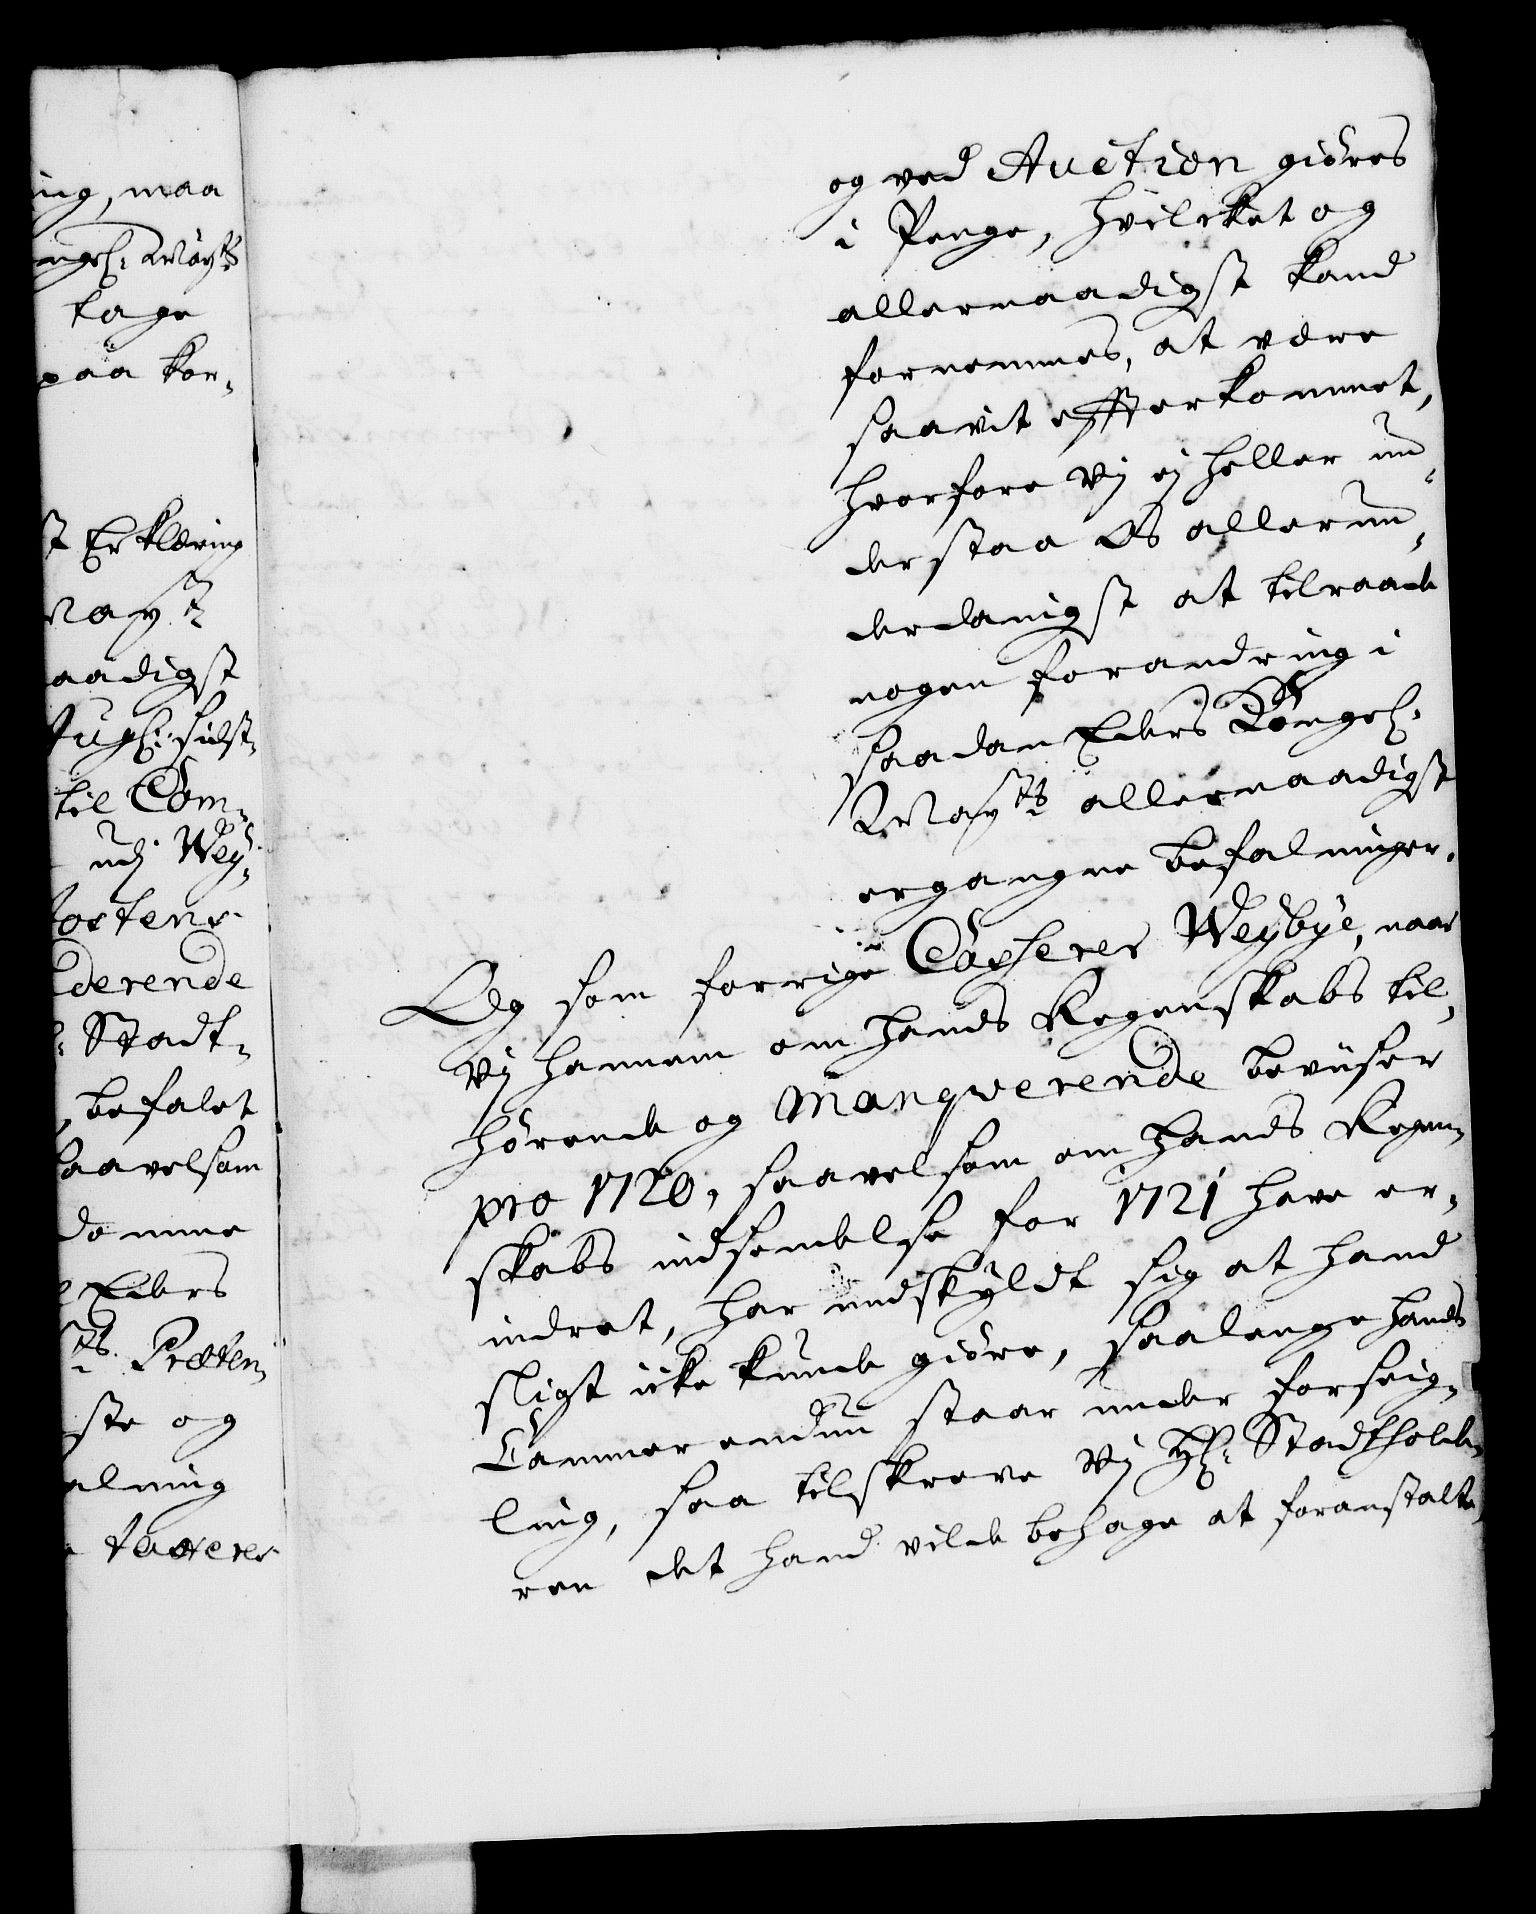 ing, maa
ngel: Mayts
tage
paa kor-
st Erklæring
Mayt:
aadigst
til Com-
udj Wey-
ostens
derende
Stadt-
befalet
saavelsom
domme
Eders
ts: Præten-
ste og
alning
og ved Auction giøres
i Penge, hvilcket og
allernaadigst kand
fornemmes, at være
saavit effterkommet,
hvorfore Vj ej heller un-
derstaa Os allerun-
derdanigst at tilraade
nogen forandring i
saadan Eders Kongel:
Mayts: allernaadigst
ergangne befalninger.
Og som forrige Casserer Weybye, naar
Vj hannem om hands Regenskabs til-
hørende og Manqverende beviiser
pro 1720, saavelsom om hands Regen-
skabs indsendelse for 1721 have er-
indret, har undskyldt sig at hand
sligt icke kunde giøre, saalenge hands
Cammer endnu staar under forseig-
ling, saa tilskreve Vj Hr: Stadtholde-
ren det hand vilde behage at foranstalte,